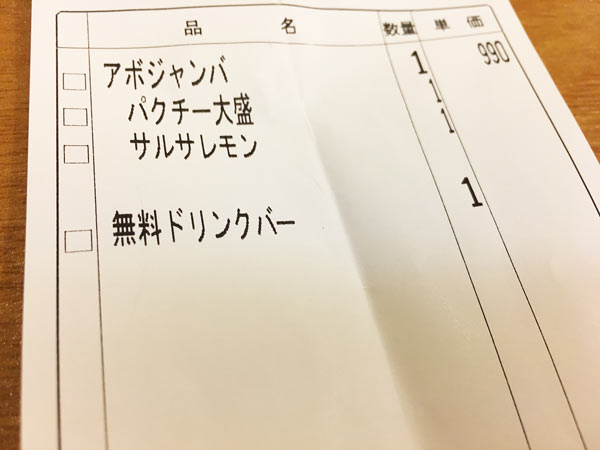 品 名 数量 単 価
アボジャンバ 1 990
パクチー大盛 1
サルサレモン 1
無料ドリンクバー 1